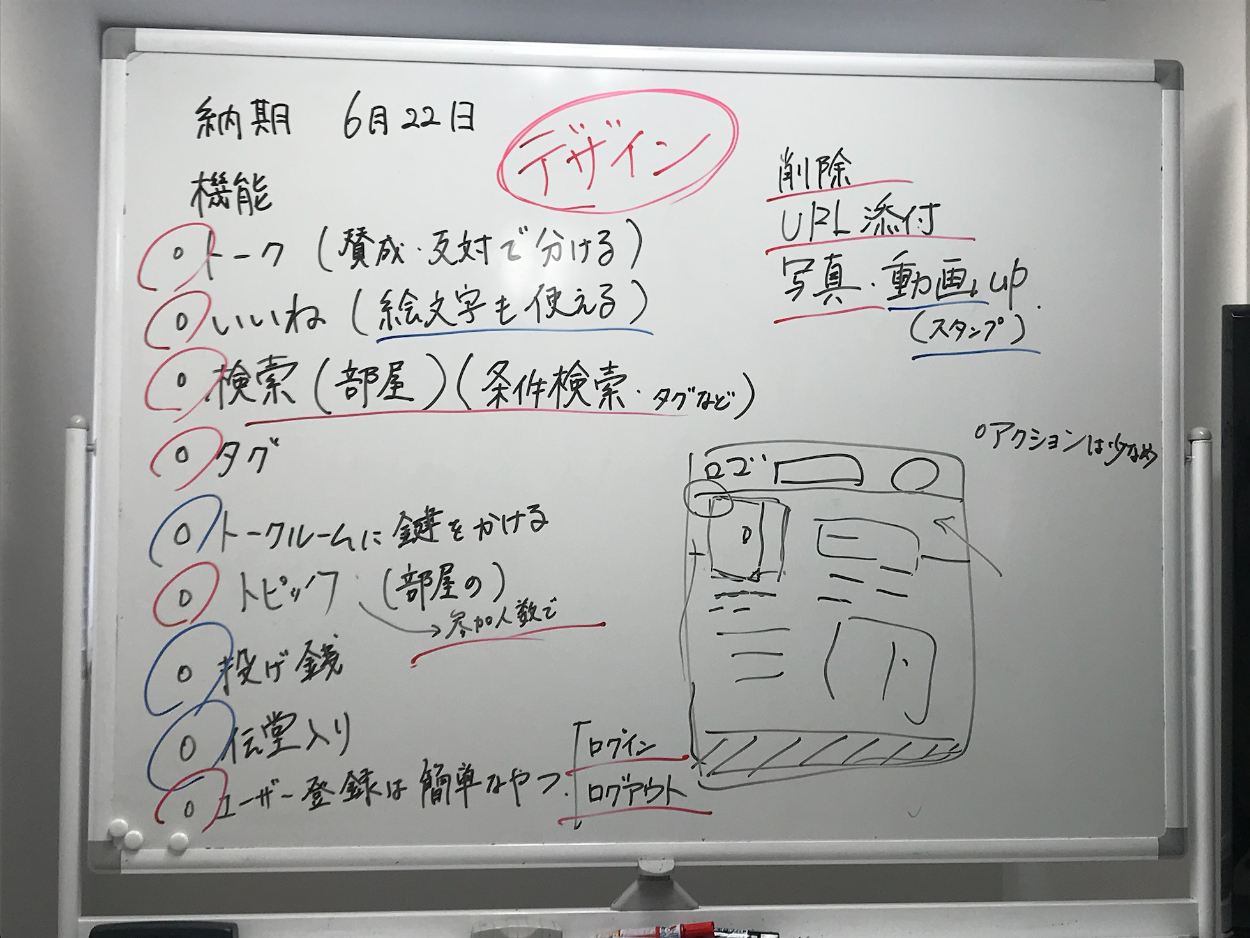 納期 6月22日
デザイン
機能
○トーク (賛成・反対で分ける)
○いいね (絵文字も使える)
○検索 (部屋) (条件検索・タグなど)
○タグ
○トークルームに鍵をかける
○トピック (部屋の)
→参加人数で
○投げ銭
○伝堂入り
○ユーザー登録は簡単なやつ
ログイン
ログアウト
削除
URL添付
写真・動画up.
(スタンプ)
○アクションは少なめ
ロゴ